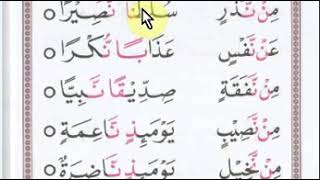 مِنْ نَّذْرٍ سُلْطٰنًا نَّصِيْرًا
عَنْ نَّفْسٍ عَذَابًا نُّكْرًا
مِنْ نَّفَقَةٍ صِدِّيْقًا نَّبِيًّا
مِنْ نَّصِيْبٍ يَوْمَىِٕذٍ نَّاعِمَةٌ
مِنْ نَّخِيْلٍ يَوْمَىِٕذٍ نَّاضِرَةٌ